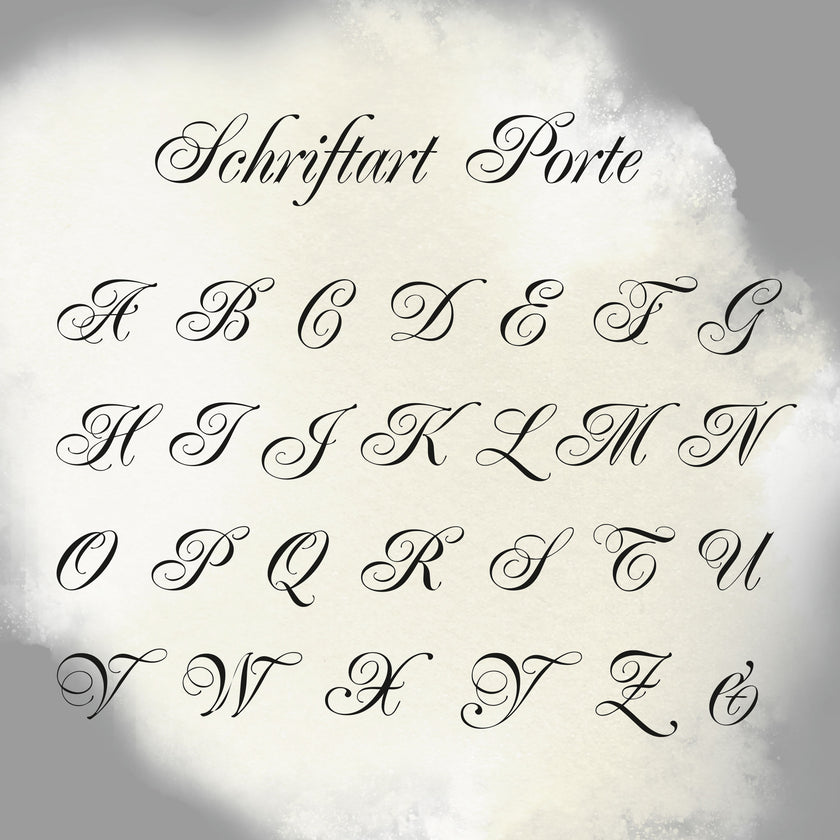 Schriftart Porte
A B C D E F G
H I J K L M N
O P Q R S T U
V W X Y Z &